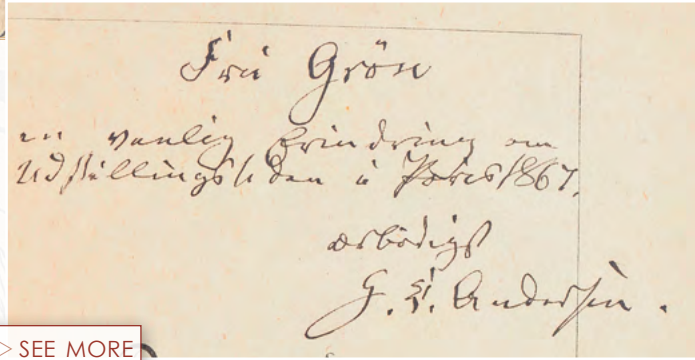 Frú Grön
en venlig Erindring om
Udstillingstiden i Paris 1867.
ærbödigst
H. C. Andersen.
> SEE MORE